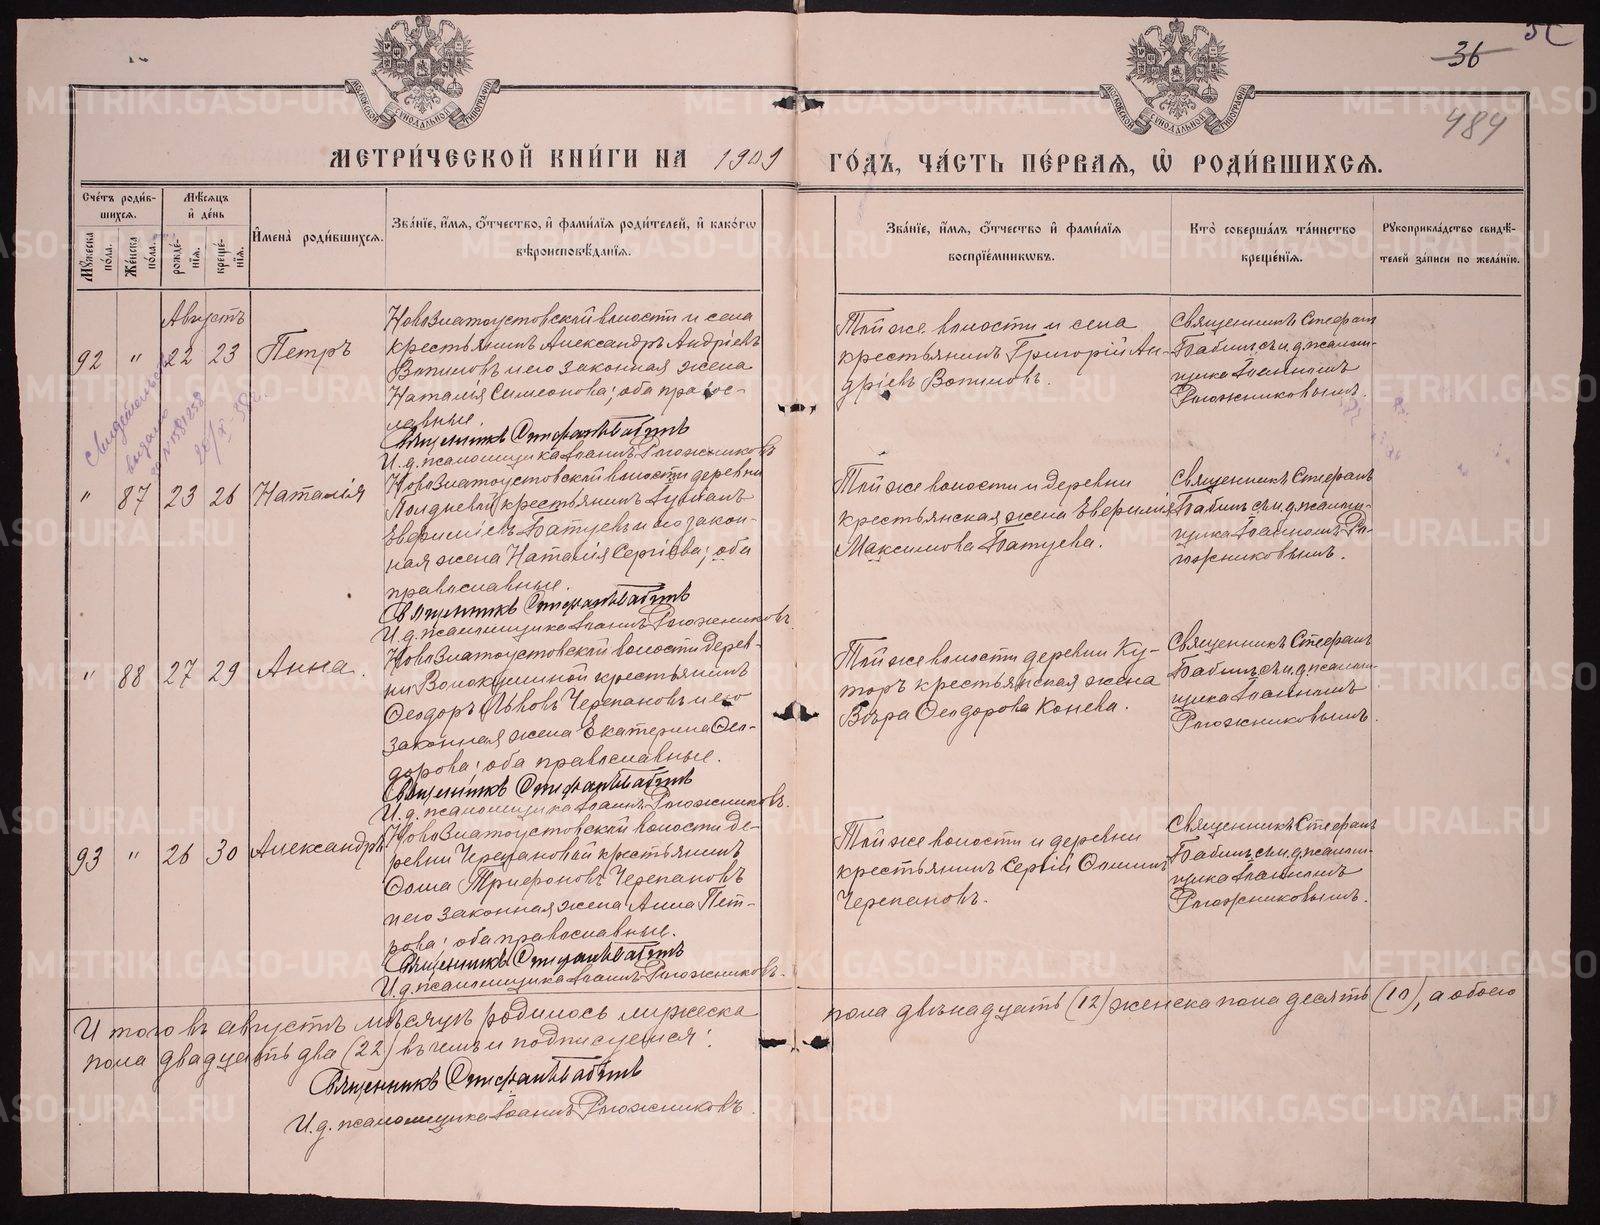 36
484
МЕТРИ́ЧЕСКОЙ КНИ́ГИ НА 1909 ГО́ДЪ, ЧА́СТЬ ПЕ́РВАЯ, Ѡ РОДИ́ВШИХСЯ.
Сче́тъ роди́в-
шихся.
Мꙋ́жеска по́ла.
Же́нска по́ла.
Мѣ́сяцъ
и де́нь
рожде́-
нія.
креще́-
нія.
И҆мена̀ роди́вшихся.
Зва́нїе, и҆́мя, ѻ҆́тчество, и҆ фами́лїя роди́телей, и҆ како́гѡ
вѣроисповѣ́данїя.
Зва́нїе, и҆́мя, ѻ҆́тчество и҆ фами́лїя
воспрїе́мникѡвъ.
Кто̀ соверша́лъ та́инство
креще́нїя.
Рꙋкоприкла́дство свидѣ́-
телей за́писи по жела́нїю.
Августъ
92 " 22 23 Петръ
Новозлатоустовской волости и села
крестьянинъ Александръ Андріевъ
Вотиновъ и его законная жена
Наталія Симеонова; оба правос-
лавные.
Священникъ Стефанъ Бабинъ
И.д. псаломщика Іоаннъ Рогожниковъ
Той же волости и села
крестьянинъ Григорій Ан-
дріевъ Вотиновъ.
Священникъ Стефанъ
Бабинъ съ и.д. псалом-
щика Іоанномъ
Рогожниковымъ.
Свидетельство
выдано
" 87 23 26 Наталія
Новозлатоустовской волости деревни
крестьянинъ
Евфиміевъ Батуевъ и его закон-
ная жена Наталія Сергіева; оба
православные.
Священникъ Стефанъ Бабинъ
И.д. псаломщика Іоаннъ Рогожниковъ
Той же волости и деревни
крестьянская жена Евфимія
Максимова Батуева.
Священникъ Стефанъ
Бабинъ съ и.д. псалом-
щика Іоанномъ Ро-
гожниковымъ.
" 88 27 29 Анна.
Новозлатоустовской волости дерев-
ни Волокушиной крестьянинъ
Ѳеодоръ Львовъ Черепановъ и его
законная жена Екатерина Ѳео-
дорова; оба православные.
Священникъ Стефанъ Бабинъ
И.д. псаломщика Іоаннъ Рогожниковъ.
Той же волости деревни Ку-
торъ крестьянская жена
Вѣра Ѳеодорова Конева.
Священникъ Стефанъ
Бабинъ съ и.д. псалом-
щика Іоанномъ
Рогожниковымъ.
93 " 26 30 Александръ
Новозлатоустовской волости де-
ревни Черепановой крестьянинъ
Ѳома Трифоновъ Черепановъ
и его законная жена Анна Пет-
рова; оба православные.
Священникъ Стефанъ Бабинъ
И.д. псаломщика Іоаннъ Рогожниковъ.
Той же волости и деревни
крестьянинъ Сергій Ѳоминъ
Черепановъ.
Священникъ Стефанъ
Бабинъ съ и.д. псалом-
щика Іоанномъ
Рогожниковымъ.
Итого въ августѣ мѣсяцѣ родилось мужеска пола двѣнадцать (12) женска пола десять (10), а обоего
пола двадцать два (22) въ чемъ и подписуемся:
Священникъ Стефанъ Бабинъ
И.д. псаломщика Іоаннъ Рогожниковъ.
METRIKI.GASO-URAL.RU